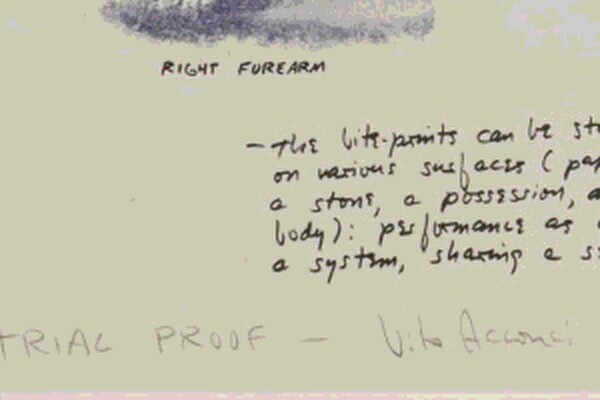 RIGHT FOREARM
– The bite-prints can be
on various surfaces (
a stone, a possession,
body): performance as
a system, sharing a
TRIAL PROOF – Vito Acconci